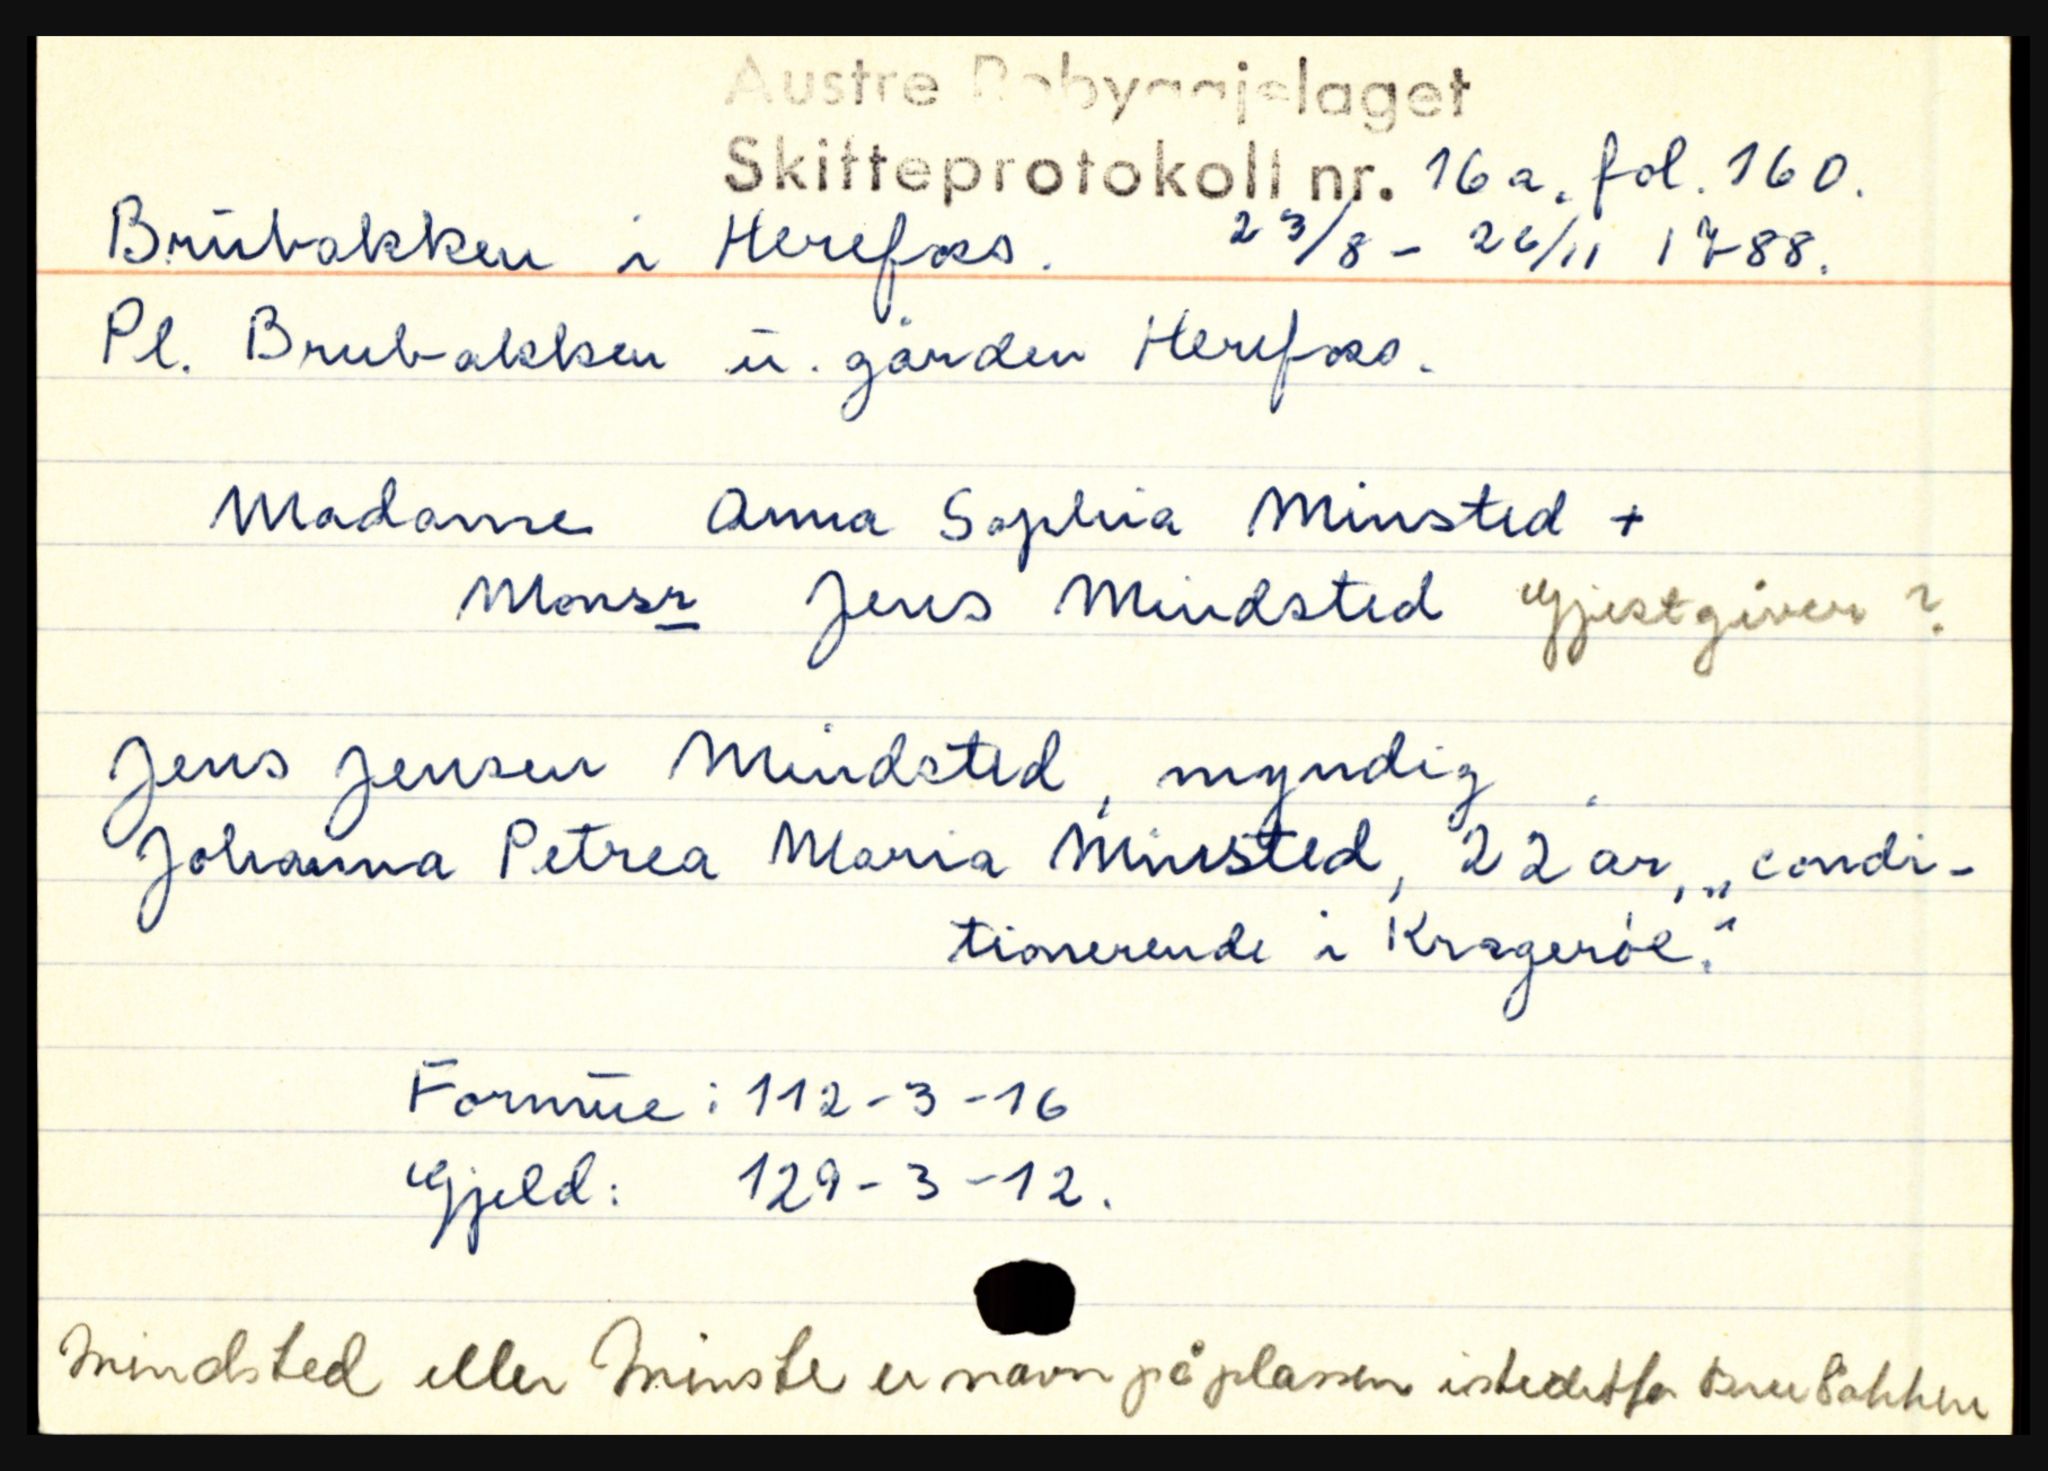 Austre Robyggjelaget
Skifteprotokoll nr. 16a. fol. 160.
Brubakken i Herefoss. 23/8 - 26/11 1788.
Pl. Brubakken u. gården Herefoss.
Madame Anna Sophia Minsted +
Monsr Jens Mindsted Gjestgiver?
Jens Jensen Mindsted, myndig.
Johanna Petrea Maria Minsted, 22 år, „condi-
tionerende i Kragerøe."
Formue: 112-3-16
Gjeld: 129-3-12.
Mindsted eller Minste er navn på plassen istedetfor Brubakken